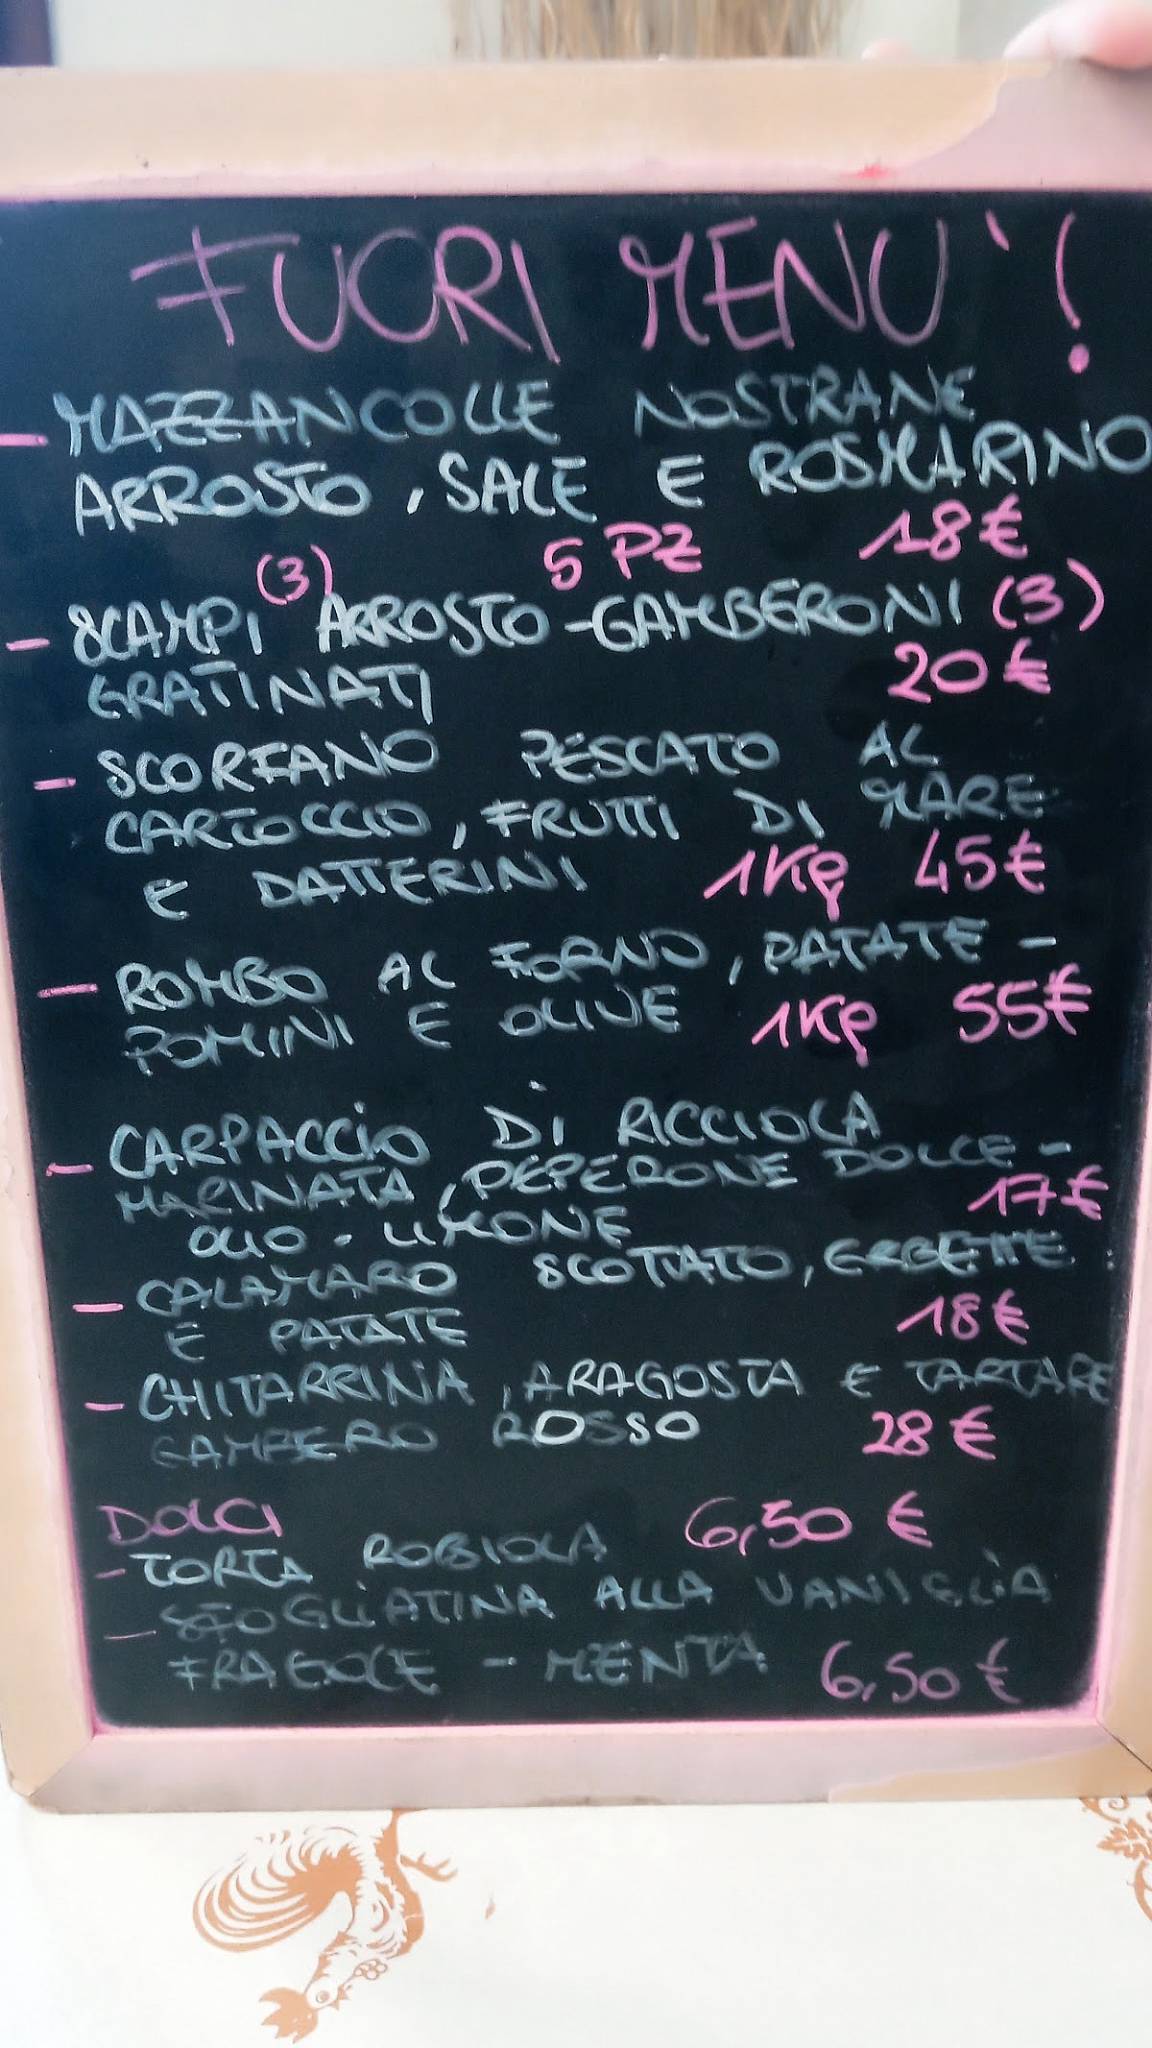 FUORI MENU'!
- MAZZANCOLLE NOSTRANE
ARROSTO, SALE E ROSMARINO
5 PZ 18€
- SCAMPI (3) ARROSTO - GAMBERONI (3)
GRATINATI 20€
- SCORFANO PESCATO AL
CARTOCCIO, FRUTTI DI MARE
E DATTERINI 1Kg 45€
- ROMBO AL FORNO, PATATE -
POMINI E OLIVE 1Kg 55€
- CARPACCIO DI RICCIOLA
MARINATA, PEPERONE DOLCE -
OLIO - LIMONE 17€
- CALAMARO SCOTTATO, ERBETTE
E PATATE 18€
- CHITARRINA, ARAGOSTA E TARTARE
GAMBERO ROSSO 28€
DOLCI
- TORTA ROBIOLA 6,50 €
- SFOGLIATINA ALLA VANIGLIA
FRAGOLE - MENTA 6,50 €